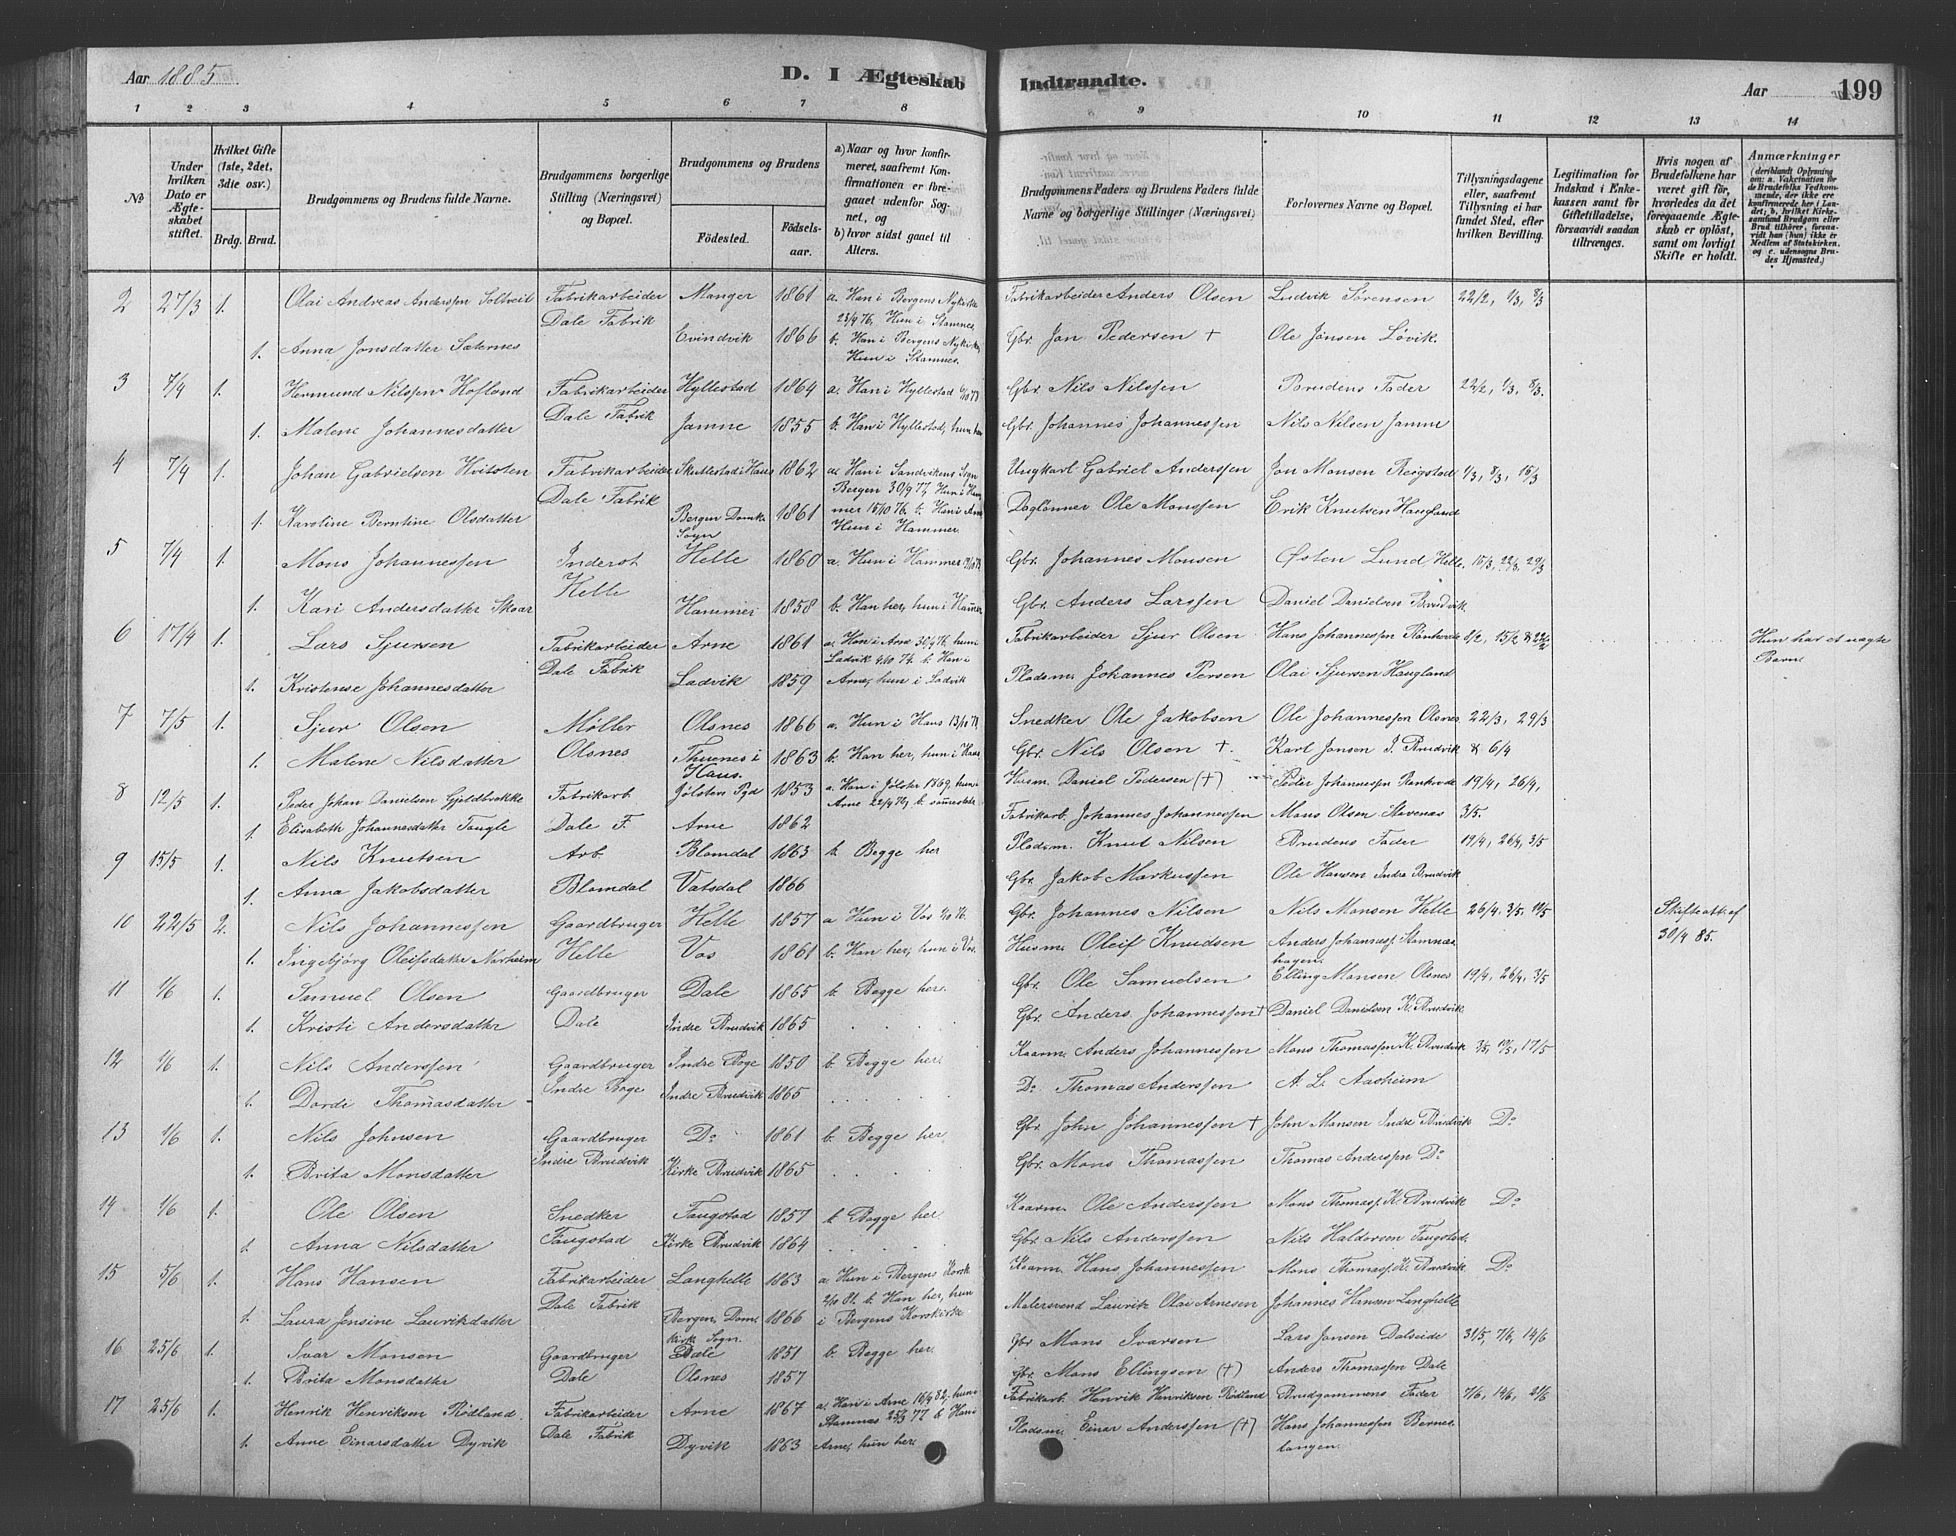 Aar 1885. D. I Ægteskab Indtraadte. Aar 199
1 2 3 4 5 6 7 8 9 10 11 12 13 14
№
Under hvilken Dato er Ægteskabet stiftet.
Hvilket Gifte (1ste, 2det, 3die osv.)
Brdg. Brud.
Brudgommens og Brudens fulde Navne.
Brudgommens borgerlige Stilling (Næringsvei) og Bopæl.
Brudgommens og Brudens
Födested. Födselsaar.
a) Naar og hvor konfirmeret, saafremt Konfirmationen er foregaaet udenfor Sognet, og
b) hvor sidst gaaet til Alters.
Brudgommens Faders og Brudens Faders fulde Navne og borgerlige Stillinger (Næringsvei)
Forlovernes Navne og Bopæl.
Tillysningsdagene eller, saafremt Tillysning ei har fundet Sted, efter hvilken Bevilling.
Legitimation for Indskud i Enkekassen samt for Giftetilladelse, forsaavidt saadan tiltrænges.
Hvis nogen af Brudefolkene har været gift för, hvorledes da det foregaaende Ægteskab er oplöst, samt om lovligt Skifte er holdt.
Anmærkninger (deriblandt Oplysning om: a. Vakcination for de Brudefolks Vedkommende, der ikke ere konfirmerede her i Landet; b. hvilket Kirkesamfund Brudgom eller Brud tilhörer, forsaavidt han (hun) ikke er Medlem af Statskirken, og c. udensogns Brudes Hjemsted.)
2 27/3 1. Olai Andreas Anderssen Soltveit Fabrikarbeider Manger 1861 a. Han i Bergens Nykirke Fabrikarbeider Anders Olsen Ludvik Sørensen 22/2, 1/3, 8/3
Dale Fabrik 23/9 76, Hun i Stamnes
1. Anna Jonsdatter Sæternes Evindvik 1866 b. Han i Bergens Nykirke, Gbr. Jon Pedersen + Ole Jonsen Løvik.
Hun i Stamnes.
3 7/4 1. Hermund Nilssen Hofland Fabrikarbeider Hyllestad 1864 a. Han i Hyllestad Gbr. Nils Nilssen Brudens Fader 22/2, 1/3, 8/3.
Dale Fabrik
1. Malene Johannesdatter Jamne 1855 b. Han i Hyllestad, hun her Gbr. Johannes Johannessen Nils Nilsen Jamne
4 7/4 1. Johan Gabrielsen Hvitoten Fabrikarbeider Skullestad i Haus 1862 a. Han i Sandvikens Sogn Ungkarl Gabriel Anderssen Jon Monsen Reigstad 1/3, 8/3, 15/3
Dale Fabrik Bergen 30/9 77, Hun i Ham
1. Karoline Berntine Olsdatter Bergen Domk. 1861 mer 15/10 76 b. Han i Arne Daglønner Ole Monssen Erik Knutsen Haugland
Sogn Hun i Hammer.
5 7/4 1. Mons Johannessen Inderst Helle 1860 a. Hun i Hammer Gbr. Johannes Monsen Østen Lund Helle. 15/3, 22/3, 29/3
Helle
1. Kari Andersdatter Skaar Hammer 1858 b. Han her, hun i Hamer Gbr. Anders Larssen Daniel Danielsen Brudvik
6 17/4 1. Lars Sjursen Fabrikarbeider Arne 1861 a. Han i Arne 30/9 76, hun Fabrikarbeider Sjur Olsen Hans Johannessen Rønhovde 8/2, 15/2 & 22/2 Hun har et uægte
Dale Fabrik Ladvik 4/10 74. b. Han i Barn.
1. Kristense Johannesdatter Ladvik 1859 Arne, hun i Ladvik Pladsm. Johannes Persen Olai Sjursen Haugland
7 7/5 1. Sjur Olsen Møller Olsnes 1866 a. Hun i Haus 13/10 78 Snedker Ole Jakobsen Ole Johannessen Olsnes 22/3, 29/3
1. Malene Nilsdatter Olsnes Thuenes i 1863 b. Han her, hun i Haus Gbr. Nils Olsen +. Karl Jonsen I. Brudvik & 6/4
Haus.
8 12/5 1. Peder Johan Danielsen Gjeldbrekke Fabrikarb. Jølsters Pgd 1853 a. Han i Jølster 1869, hun i Husm. Daniel Pedersen (+) Peder Johannessen Rønhovde 19/4, 26/4,
Arne 22/9 78, b. sammesteds
1. Elisabeth Johannesdatter Taugle Dale F. Arne 1862 Fabrikarb. Johannes Johannessen Mons Olsen Stavenes 3/5.
9 15/5 1. Nils Knutsen Arb. Blomdal 1863 b. Begge her Pladsm. Knut Nilsen Brudens Fader 19/4, 26/4, 3/5
1. Anna Jakobsdatter Blomdal Vatsdal 1866 Gbr. Jakob Markussen Ole Hansen Indre Brudvik
10 22/5 2. Nils Johannessen Gaardbruger Helle 1857 a Hun i Vos 1/10 76. Gbr. Johannes Nilsen Nils Monsen Helle 26/4, 3/5, 10/5 Skifteatt. af
1. Ingebjørg Oleifsdatter Norheim Helle Vos 1861 b. Han her, hun i Vos. Husm. Oleif Knudsen Anders Johannesf. Stamnes 30/4 85.
hagen.
11 1/6 1. Samuel Olsen Gaardbruger Dale 1865 b. Begge her. Gbr. Ole Samuelsen Elling Monsen Olsnes 19/4, 26/4, 3/5
1. Kristi Andersdatter Dale Indre Brudvik 1865 Gbr. Anders Johannessen + Daniel Danielsen K. Brudvik
12 1/6 1. Nils Anderssen Gaardbruger Indre Boge 1850 b. Begge her. Kaarm. Anders Johannessen Mons Thomassen K. Brudvik 3/5, 10/5, 17/5
1. Dordi Thomasdatter Indre Boge Indre Brudvik 1865 Do Thomas Anderssen A. L. Aasheim
13 1/6 1. Nils Johnsen Gaardbruger Do 1861 b. Begge her. Gbr. John Johannessen + John Monsen Indre Brudvik Do
1. Brita Monsdatter Indre Brudvik Kirke Brudvik 1865 Gbr. Mons Thomassen Thomas Anderssen Do
14 1/6 1. Ole Olsen Snedker Faugstad 1857 b. Begge her. Kaarm. Ole Anderssen Mons Thomasf. K. Brudvik Do
1. Anna Nilsdatter Faugstad Kirke Brudvik 1864 Gbr. Nils Anderssen Nils Haldorsen Faugstad.
15 5/6 1. Hans Hansen Fabrikarbeider Langhelle 1863 a. Hun i Bergens Korsk. Kaarm. Hans Johannessen Mons Thomasf. K. Brudvik Do
Dale Fabrik 2/10 81. b. Han her, hun
1. Laura Jensine Lauriksdatter Bergen, Dom 1866 i Bergens Korskirke Malersvend Laurik Olai Arnesen Johannes Hansen Langhelle
kirk. Sogn.
16 25/6 1. Ivar Monsen Gaardbruger Dale 1851 b. Begge her. Gbr Mons Ivarsen Lars Jonsen Dalseide 31/5, 7/6, 14/6
1. Brita Monsdatter Dale Olsnes 1857 Gbr. Mons Ellingsen (+) Anders Thomassen Dale
17 25/6 1. Henrik Henriksen Rødland. Fabrikarbeider Arne 1867 a. Han i Arne 16/9 82, hun i Fabrikarb. Henrik Henriksen Rødland Brudgommens Fader 7/6, 14/6, 21/6
Dale Fabrik Stamnes 25/3 77 b Han i
1. Anne Einarsdatter Dyvik Dyvik 1863 Arne, hun her. Pladsm. Einar Anderssen (+) Hans Johannessen Bernes
tangen.